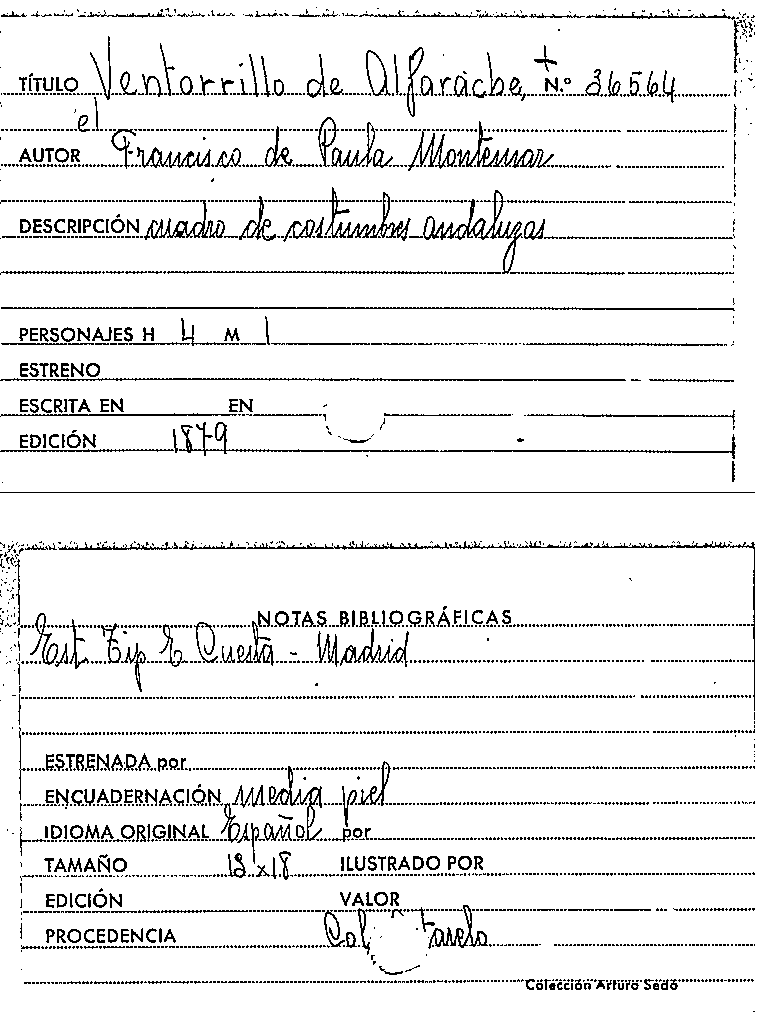 TÍTULO Ventorrillo de Alfarache, + N.º 36564
el
AUTOR Francisco de Paula Montemar
DESCRIPCIÓN cuadro de costumbres andaluzas
PERSONAJES H 4 M 1
ESTRENO
ESCRITA EN EN
EDICIÓN 1879
NOTAS BIBLIOGRÁFICAS
Est. Tip E Cuesta - Madrid
ESTRENADA por
ENCUADERNACIÓN media piel
IDIOMA ORIGINAL Español por
TAMAÑO x18 ILUSTRADO POR
EDICIÓN VALOR
PROCEDENCIA Col.
Colección Arturo Sedó